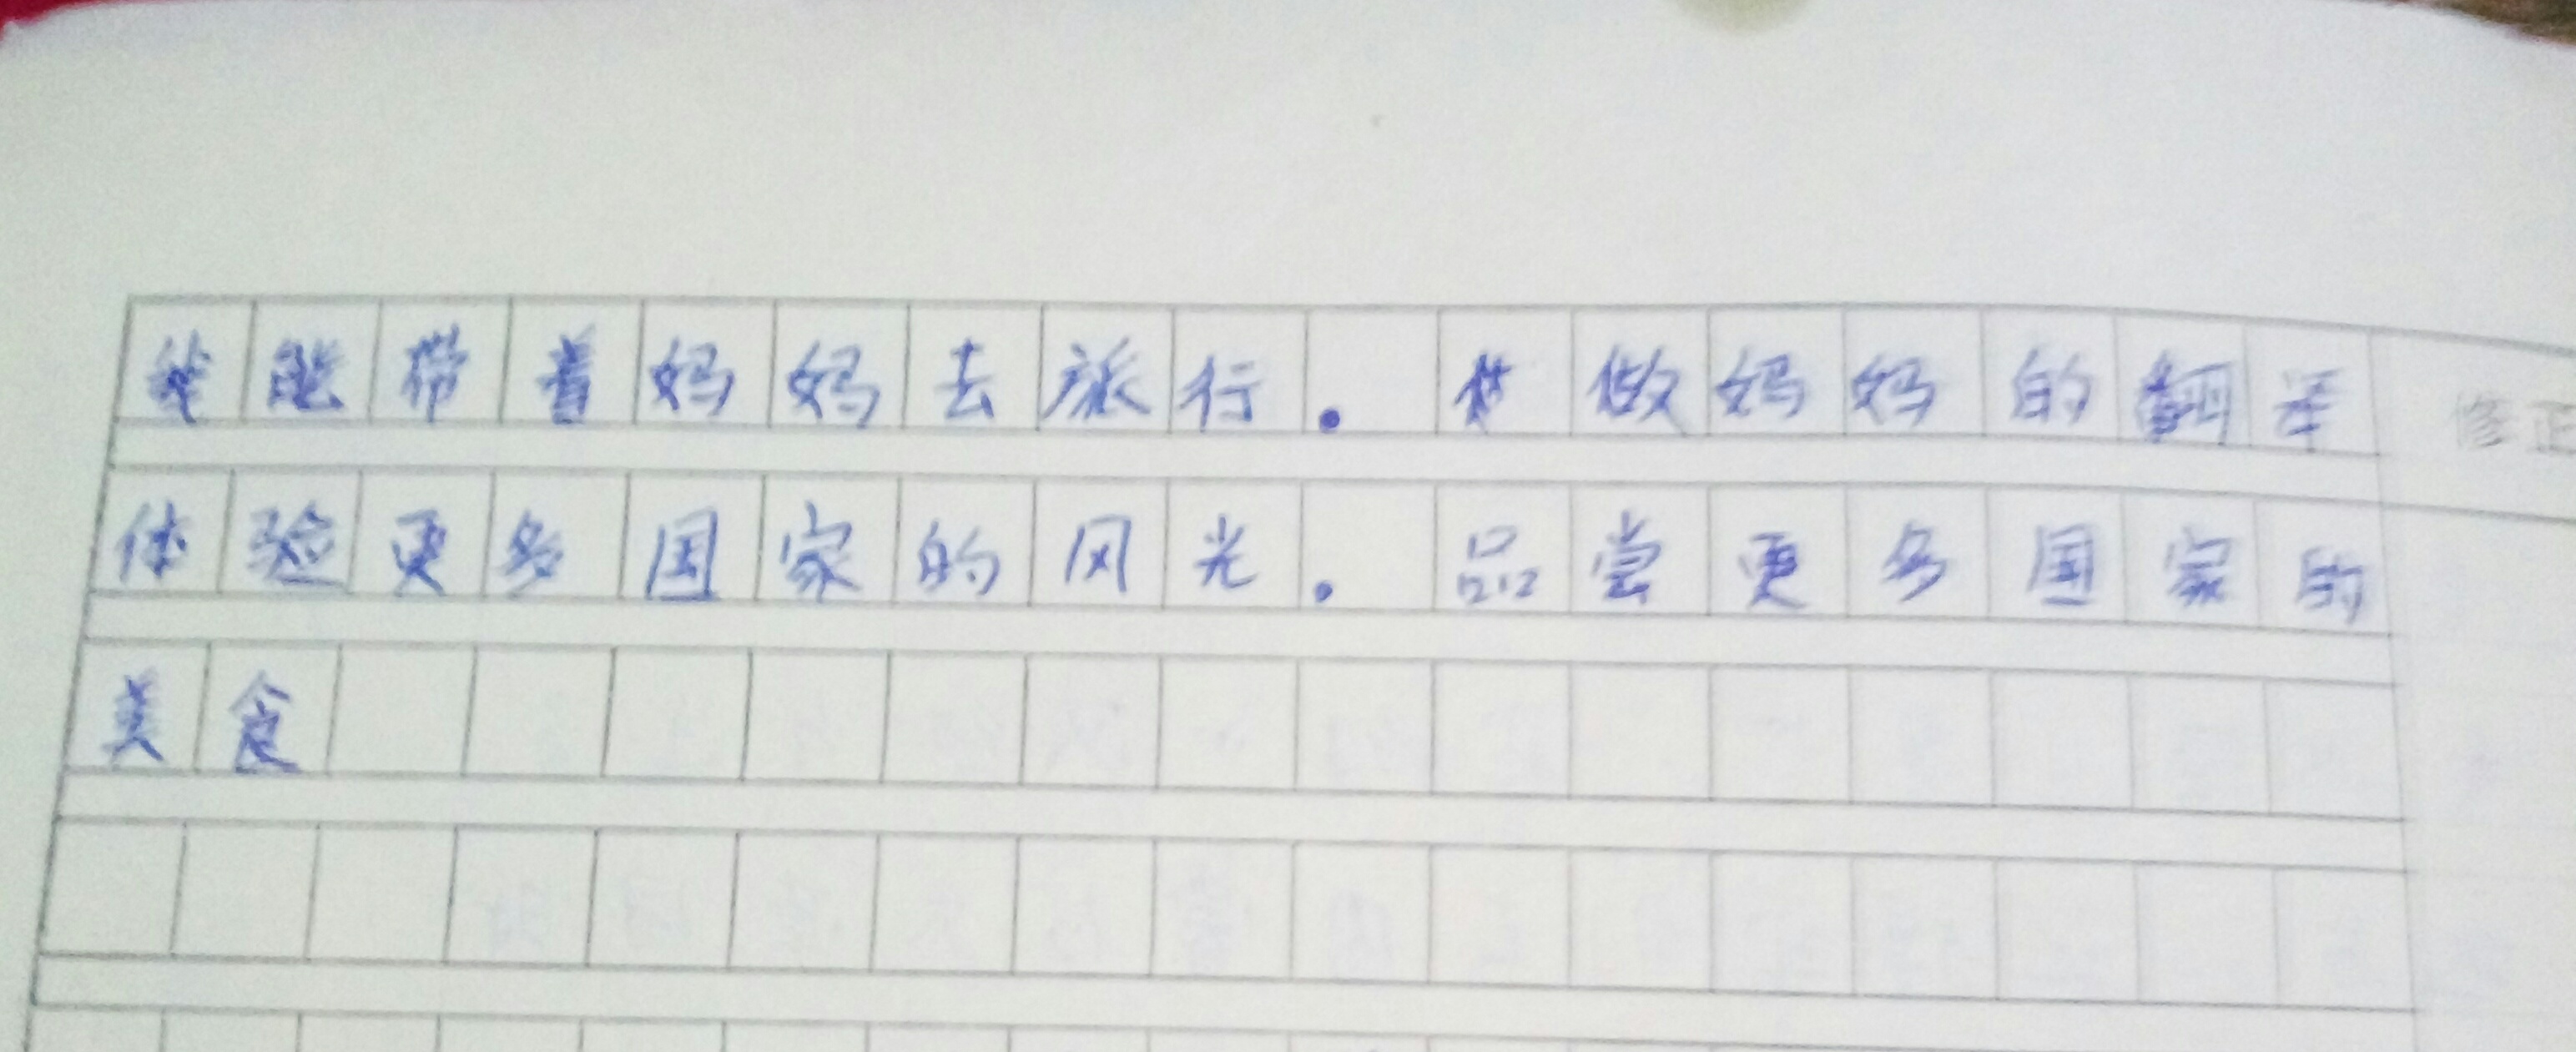 我能带着妈妈去旅行. 做妈妈的翻译 修正
体验更多国家的风光. 品尝更多国家的
美食